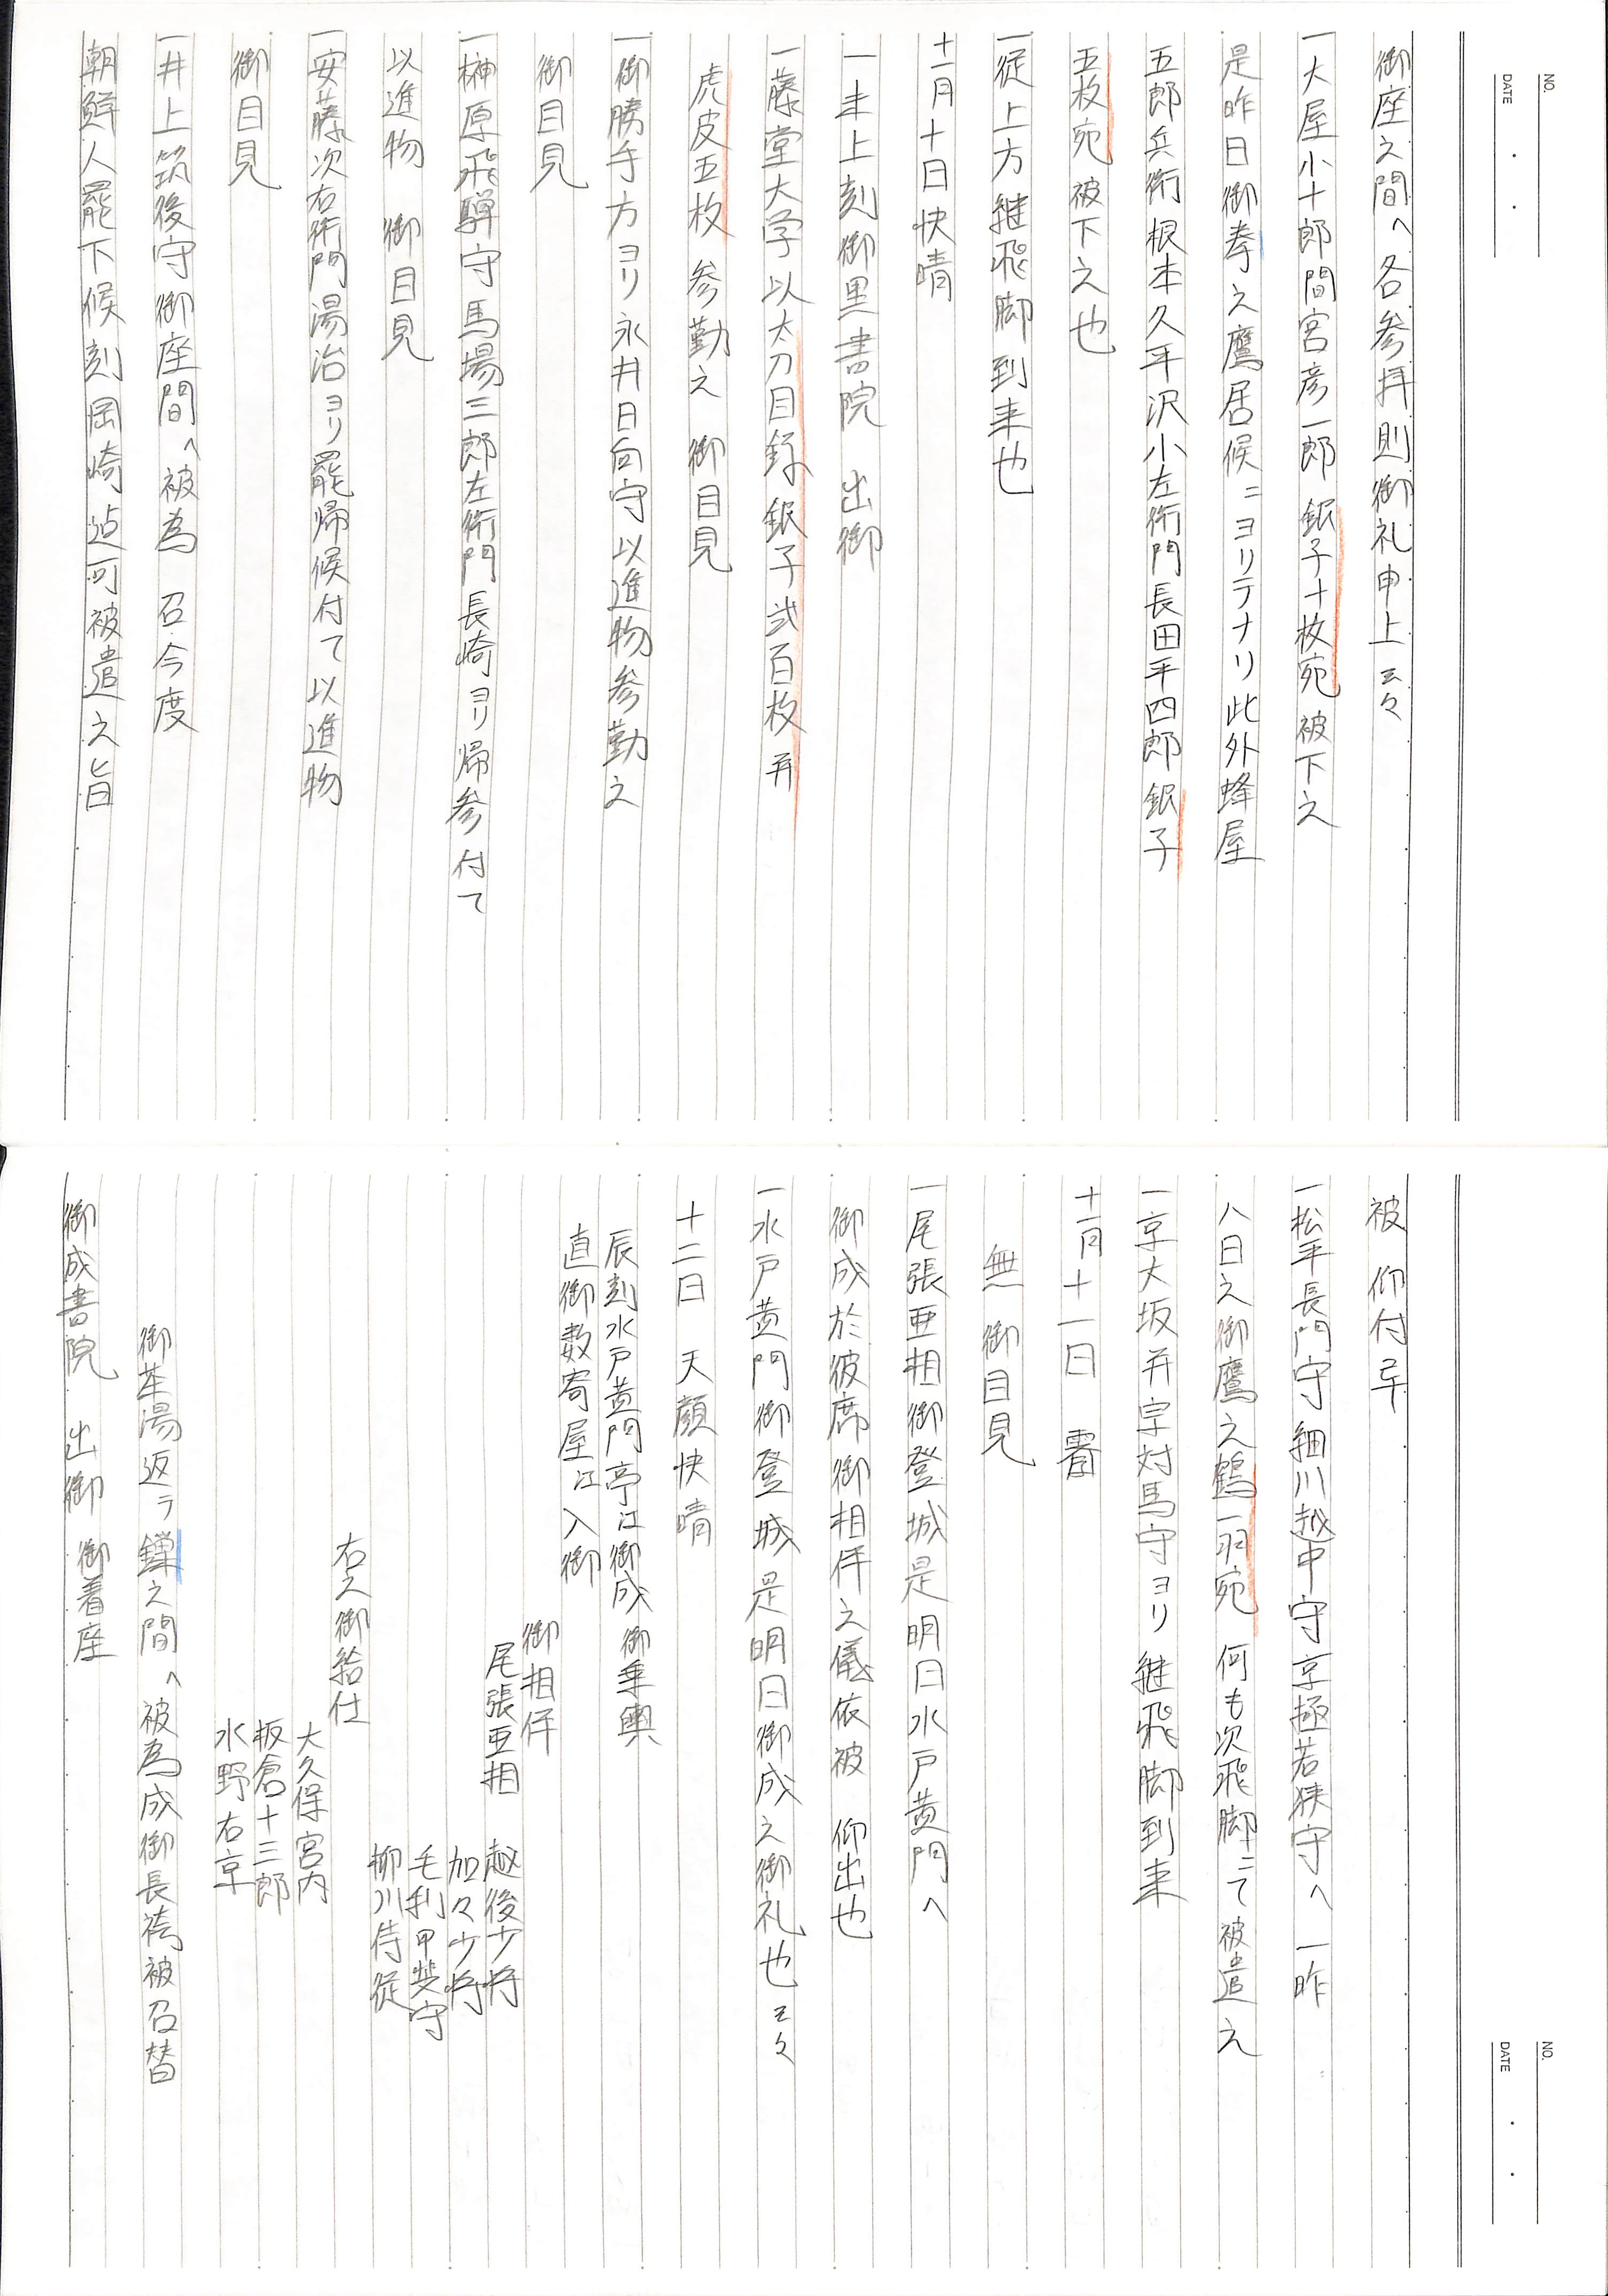 NO.
DATE
御座之間へ各参拝則御礼申上云々
一大屋小十郎間宮彦一郎銀子十枚宛被下之
是昨日御拳之鷹居候ニヨリテナリ此外蜂屋
五郎兵衛根本久平沢小左衛門長田平四郎銀子
五枚宛被下之也
一従上方継飛脚到来也
十一月十日快晴
一未上刻御黒書院 出御
一藤堂大学以太刀目録銀子弐百枚并
虎皮五枚参勤之 御目見
一御勝手方ヨリ永井日向守以進物参勤之
御目見
一榊原飛騨守馬場三郎左衛門長崎ヨリ帰参付て
以進物 御目見
一安藤次右衛門湯治ヨリ罷帰候付て以進物
御目見
一井上筑後守御座間へ被為 召今度
朝鮮人罷下候刻岡崎迠可被遣之旨
NO.
DATE
被 仰付云々
一松平長門守細川越中守京極若狭守へ一昨
八日之御鷹之鶴一羽宛何も次飛脚ニて被遣之
一京大坂并宗対馬守ヨリ継飛脚到来
十一月十一日
無御目見
一尾張亜相御登城是明日水戸黄門へ
御成於彼席御相伴之儀依被 仰出也
一水戸黄門御登城是明日御成之御礼也云々
十二日 天顔快晴
辰刻水戸黄門亭江御成御乗輿
直御数寄屋江入御
御相伴
尾張亜相 越後少将
加々少将
毛利甲斐守
柳川侍従
右之御給仕
大久保宮内
板倉十三郎
水野右京
御茶湯返ラ鏁之間へ被為成御長袴被召替
御成書院 出御 御着座